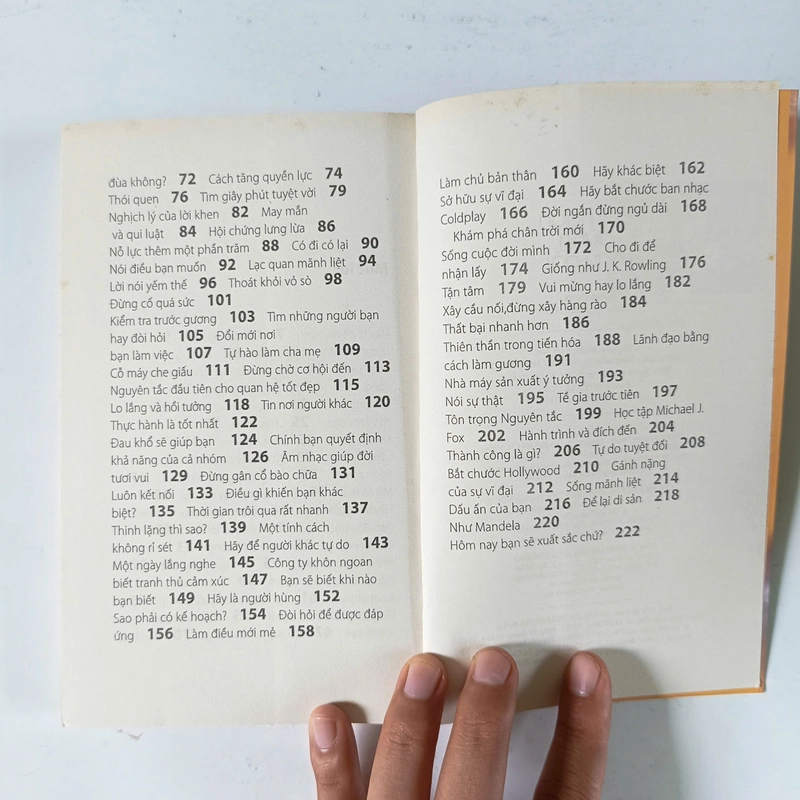 đùa không? 72 Cách tăng quyền lực 74
Thói quen 76 Tìm giây phút tuyệt vời 79
Nghịch lý của lời khen 82 May mắn
và qui luật 84 Hội chứng lưng lừa 86
Nỗ lực thêm một phần trăm 88 Có đi có lại 90
Nói điều bạn muốn 92 Lạc quan mãnh liệt 94
Lời nói yếm thế 96 Thoát khỏi vỏ sò 98
Đừng cố quá sức 101
Kiểm tra trước gương 103 Tìm những người bạn
hay đòi hỏi 105 Đổi mới nơi
bạn làm việc 107 Tự hào làm cha mẹ 109
Cỗ máy che giấu 111 Đừng chờ cơ hội đến 113
Nguyên tắc đầu tiên cho quan hệ tốt đẹp 115
Lo lắng và hồi tưởng 118 Tin nơi người khác 120
Thực hành là tốt nhất 122
Đau khổ sẽ giúp bạn 124 Chính bạn quyết định
khả năng của cả nhóm 126 Âm nhạc giúp đời
tươi vui 129 Đừng gân cổ bào chữa 131
Luôn kết nối 133 Điều gì khiến bạn khác
biệt? 135 Thời gian trôi qua rất nhanh 137
Thinh lặng thì sao? 139 Một tính cách
không rỉ sét 141 Hãy để người khác tự do 143
Một ngày lắng nghe 145 Công ty khôn ngoan
biết tranh thủ cảm xúc 147 Bạn sẽ biết khi nào
bạn biết 149 Hãy là người hùng 152
Sao phải có kế hoạch? 154 Đòi hỏi để được đáp
ứng 156 Làm điều mới mẻ 158
Làm chủ bản thân 160 Hãy khác biệt 162
Sở hữu sự vĩ đại 164 Hãy bắt chước ban nhạc
Coldplay 166 Đời ngắn đừng ngủ dài 168
Khám phá chân trời mới 170
Sống cuộc đời mình 172 Cho đi để
nhận lấy 174 Giống như J. K. Rowling 176
Tận tâm 179 Vui mừng hay lo lắng 182
Xây cầu nối,đừng xây hàng rào 184
Thất bại nhanh hơn 186
Thiên thần trong tiến hóa 188 Lãnh đạo bằng
cách làm gương 191
Nhà máy sản xuất ý tưởng 193
Nói sự thật 195 Tề gia trước tiên 197
Tôn trọng Nguyên tắc 199 Học tập Michael J.
Fox 202 Hành trình và đích đến 204
Thành công là gì? 206 Tự do tuyệt đối 208
Bắt chước Hollywood 210 Gánh nặng
của sự vĩ đại 212 Sống mãnh liệt 214
Dấu ấn của bạn 216 Để lại di sản 218
Như Mandela 220
Hôm nay bạn sẽ xuất sắc chứ? 222